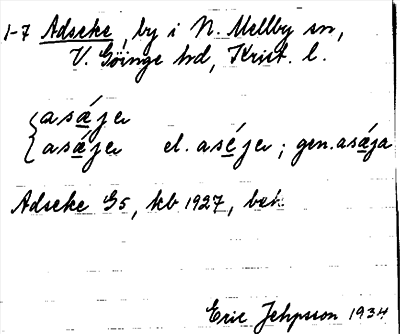 1-7 Adseke, by i N. Mellby sn,
V. Göinge hd, Krist. l.
asǽje
asǽje el. aséje; gen. asǽja
Adseke G5, kb 1927, bet.
Eric Jehpsson 1934